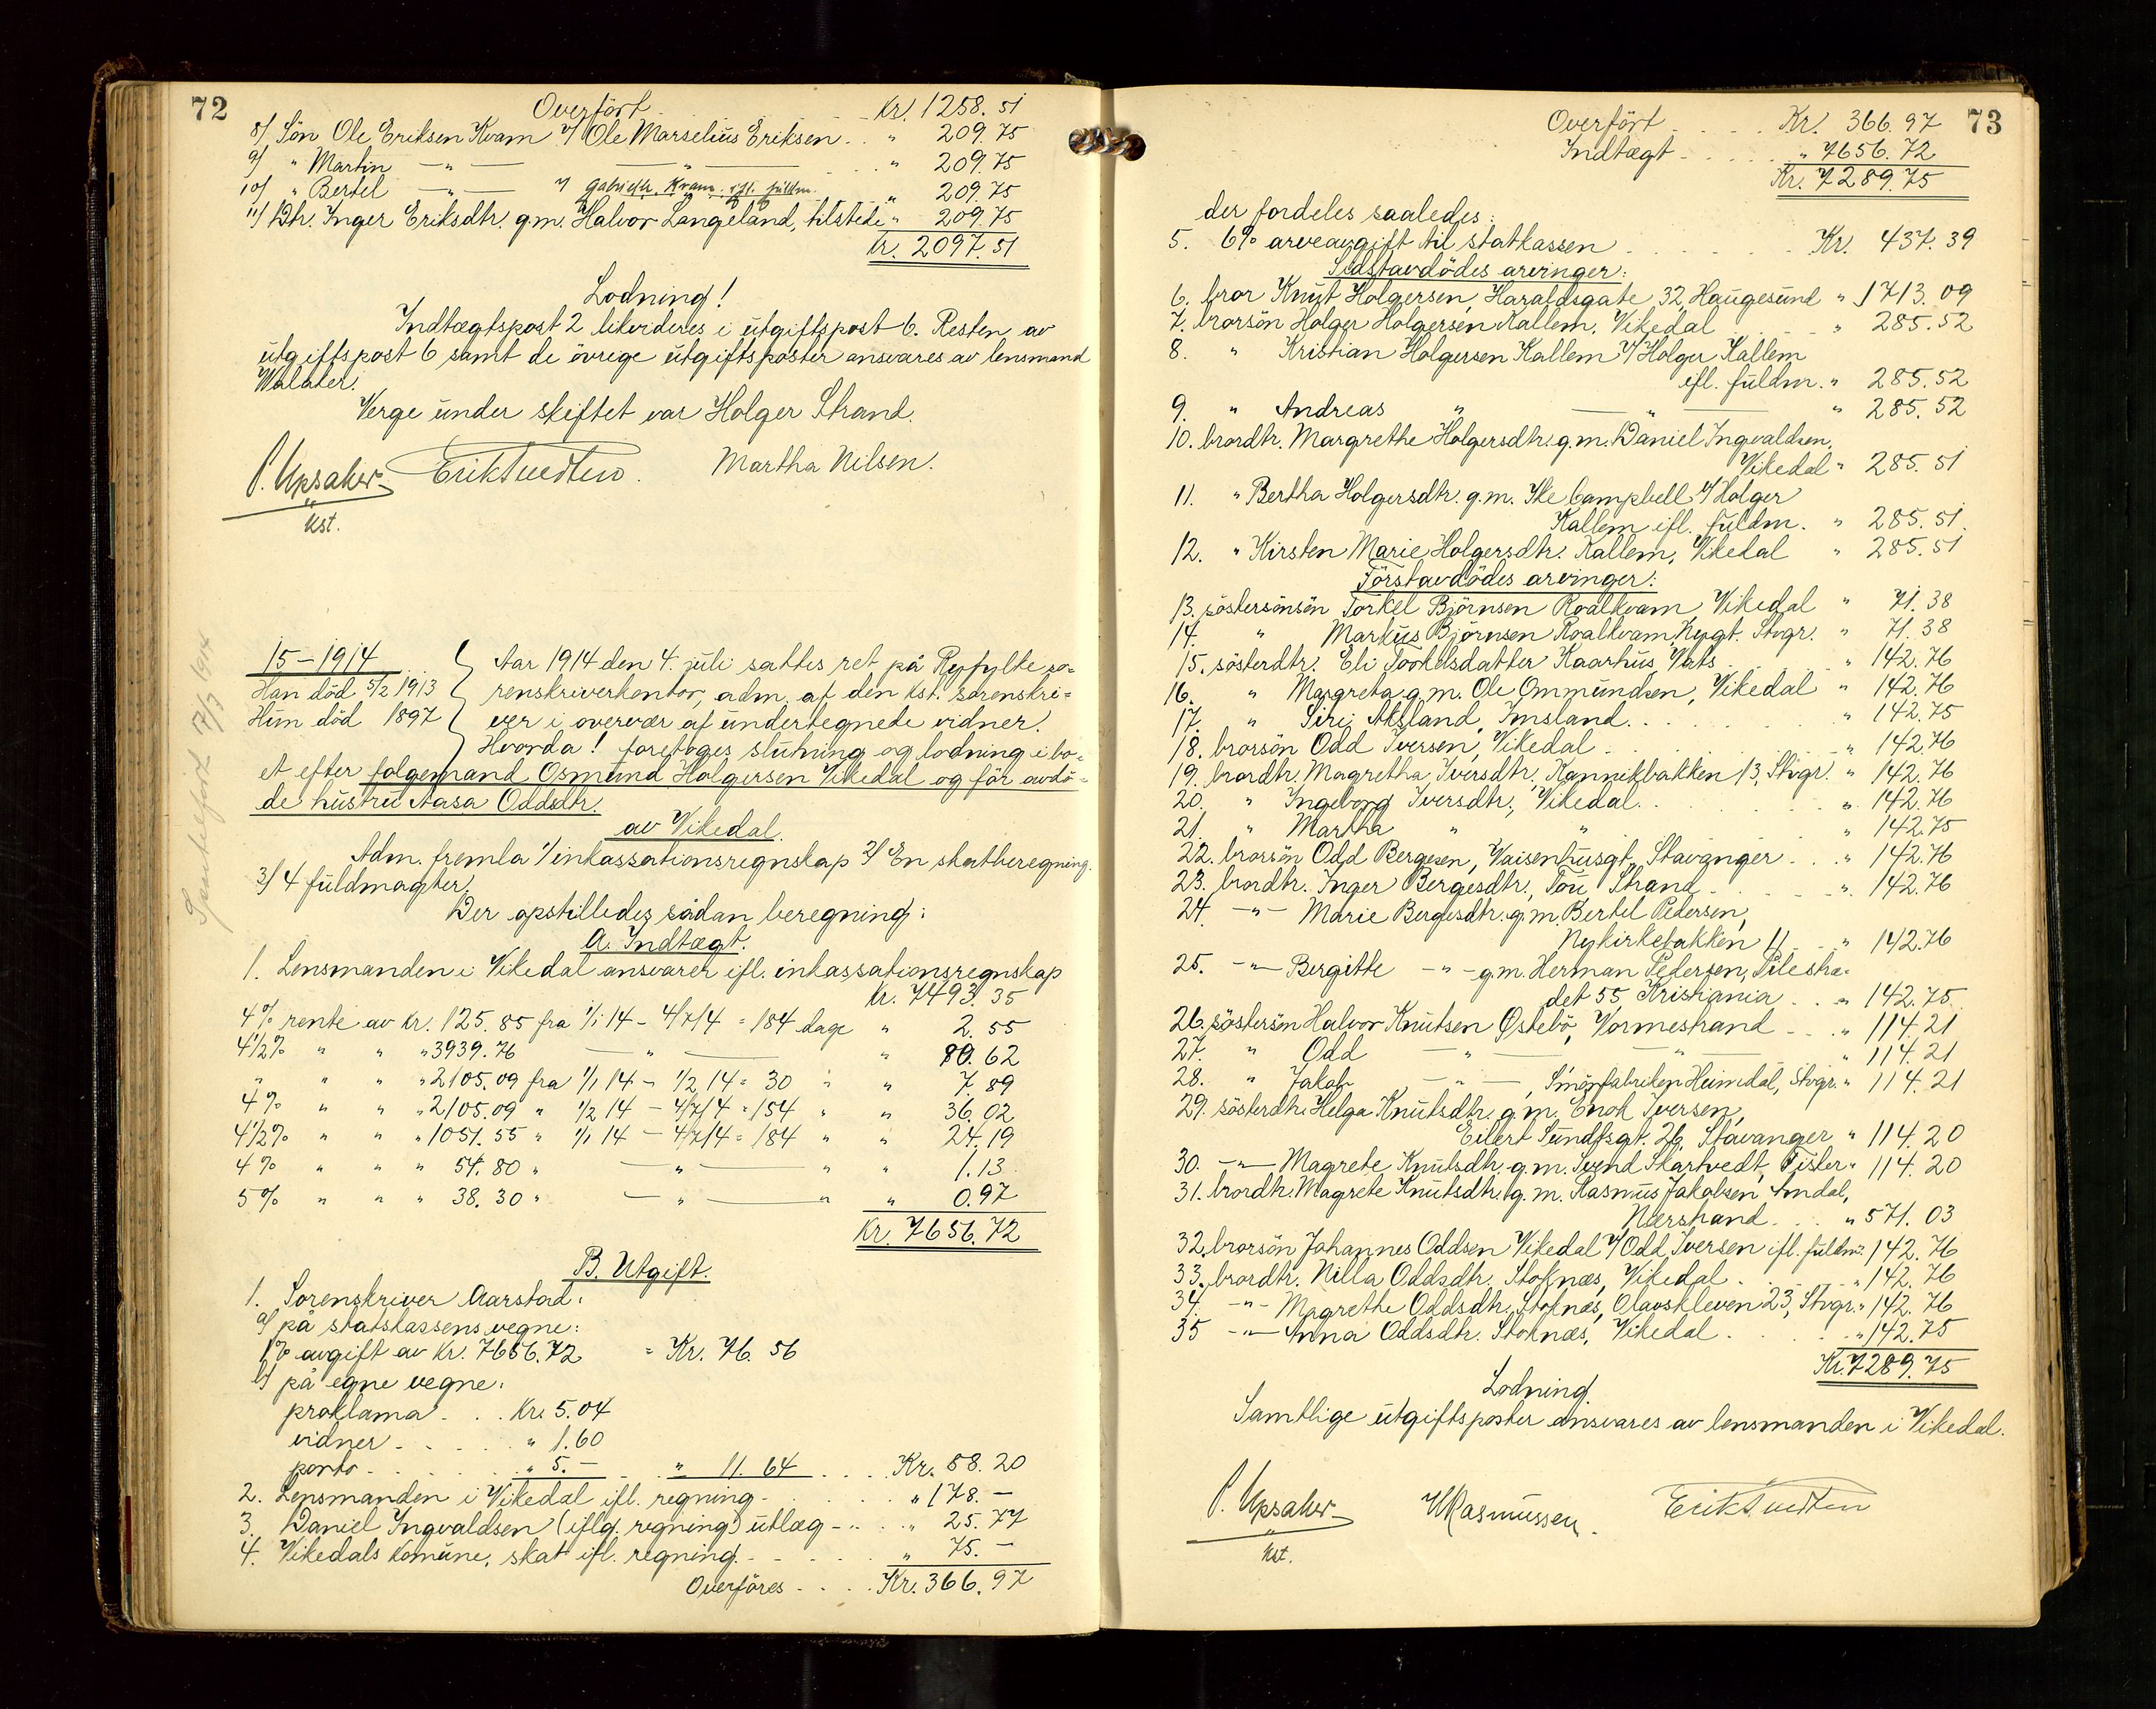 72
Overført Kr. 1258.51
8/ Sön Ole Eriksen Kvam v/ Ole Marselius Eriksen . . " 209.75
9/ " Martin —"— —"— . . " 209.75
10/ " Bertel —"— v/ Gabriel Kvam ifl. fuldm. " 209.75
11/ Dtr. Inger Eriksdtr. g.m. Halvor Langeland, tilstede " 209.75
Kr. 2097.51
Lodning!
Indtægtspost 2 likvideres i utgiftspost 6. Resten av
utgiftspost 6 samt de övrige utgiftsposter ansvares av lensmand
Walaker.
Verge under skiftet var Holger Strand.
P. Upsaker Erik Tvedten. Martha Nilsen.
Kst.
15-1914 Aar 1914 den 4. juli sattes ret på Ryfylke so-
Han död 5/2 1913 renskriverkontor, adm. af den kst. sorenskri-
Hun död 1897 ver i overvær af undertegnede vidner.
Hvorda! foretoges slutning og lodning i bo-
et efter folgemand Osmund Holgersen Vikedal og för avdö-
de hustru Aasa Oddsdtr.
av Vikedal.
Adm. fremla 1/ inkassationsregnskap 2/ En skatberegning.
3/ 4 fuldmagter.
Der opstilledes sådan beregning:
A. Indtægt.
1. Lensmanden i Vikedal ansvarer ifl. inkassationsregnskap
Kr. 7493.35
4% rente av kr. 125.85 fra 1/1 14 - 4/7 14 = 184 dage " 2.55
4 1/2% " " " 3939.76 —"— " 80.62
" " " " 2105.09 fra 1/1 14 - 1/2 14 = 30 " " 7.89
4% " " " 2105.09 " 1/2 14 - 4/7 14 = 154 " " 36.02
4 1/2% " " " 1051.55 " 1/1 14 - 4/7 14 = 184 " " 24.19
4% " " " 54.80 " —"— " " 1.13
5% " " " 38.30 " —"— " " 0.97
Kr. 7656.72
B. Utgift.
1. Sorenskriver Aarstad:
a/ på statskassens vegne:
1% avgift av kr. 7656.72 = Kr. 76.56
b/ på egne vegne:
proklama . . . Kr. 5.04
vidner . . . . . " 1.60
porto . . . . . . " 5.— " 11.64 . . . . Kr. 88.20
2. Lensmanden i Vikedal ifl. regning . . . . . " 178.—
3. Daniel Ingvaldsen (iflg. regning) utlæg . . . " 25.77
4. Vikedals Komune, skat ifl. regning . . . . . " 75.—
Overföres . . . . Kr. 366.97
73
Overfört . . . . Kr. 366.97
Indtægt . . . . . " 7656.72
Kr. 7289.75
der fordeles saaledes:
5. 6% arveavgift til statkassen . . . . . Kr. 437.39
Sidstavdödes arvinger:
6. bror Knut Holgersen, Haraldsgate 32, Haugesund " 1713.09
7. brorsön Holger Holgersen Kallem, Vikedal . . . . " 285.52
8. " Kristian Holgersen Kallem v/ Holger Kallem
ifl. fuldm. " 285.52
9. " Andreas " —"— " 285.52
10. brordtr. Margrethe Holgersdtr. g.m. Daniel Ingvaldsen,
Vikedal " 285.51
11. " Bertha Holgersdtr. g.m. Ike Campbell v/ Holger
Kallem ifl. fuldm. " 285.51
12. " Kirsten Marie Holgersdtr. Kallem, Vikedal " 285.51
Förstavdödes arvinger:
13. söstersönsön Torkel Björnsen Roalkvam Vikedal " 71.38
14. " Markus Björnsen Roalkvam, Nygt. Stvgr. " 71.38
15. sösterdtr. Eli Torkelsdatter Kaarhus Vats . . . . " 142.76
16. " Margreta g.m. Ole Ommundsen, Vikedal " 142.76
17. " Siri Aksland, Imsland . . . . . " 142.75
18. brorsön Odd Iversen, Vikedal . . . . . " 142.76
19. brordtr. Magretha Iversdtr. Kannikbakken 13, Stvgr. " 142.76
20. " Ingeborg Iversdtr., Vikedal . . . . " 142.76
21. " Martha " " " 142.75
22. brorsön Odd Bergesen, Vaisenhusgt. Stavanger . . . " 142.76
23. brordtr. Inger Bergesdtr., Tou Strand . . . . " 142.76
24. —"— Marie Bergesdtr. g.m. Bertel Pedersen,
Nykirkebakken 11 . . " 142.76
25. —"— Bergitte —"— g.m. Herman Pedersen, Pilestræ-
det 55, Kristiania . . " 142.75
26. söstersön Halvor Knutsen Østebö, Vormestrand . . . " 114.21
27. " Odd —"— —"— " 114.21
28. " Jakob —"—, Smörfabriken Heimdal, Stvgr. " 114.21
29. sösterdtr. Helga Knutsdtr. g.m. Enok Iversen,
Eilert Sundtsgt. 26, Stavanger " 114.20
30. —"— Magrete Knutsdtr. g.m. Svend Skartvedt, Fister " 114.20
31. brordtr. Magrete Knutsdtr. g.m. Rasmus Jakobsen Amdal,
Nærstrand . . . " 571.03
32. brorsön Johannes Oddsen Vikedal v/ Odd Iversen ifl. fuldm. 142.76
33. brordtr. Nilla Oddsdtr. Stoknæs, Vikedal . . . . " 142.76
34. —"— Magrethe Oddsdtr. Stoknæs, Olavskleven 23, Stvgr. " 142.76
35 —"— Anna Oddsdtr. Stoknæs, Vikedal . . . . . " 142.75
Kr. 7289.75
Lodning.
Samtlige utgiftsposter ansvares av lensmanden i Vikedal.
P. Upsaker Rasmussen. Erik Tvedten
Kst.